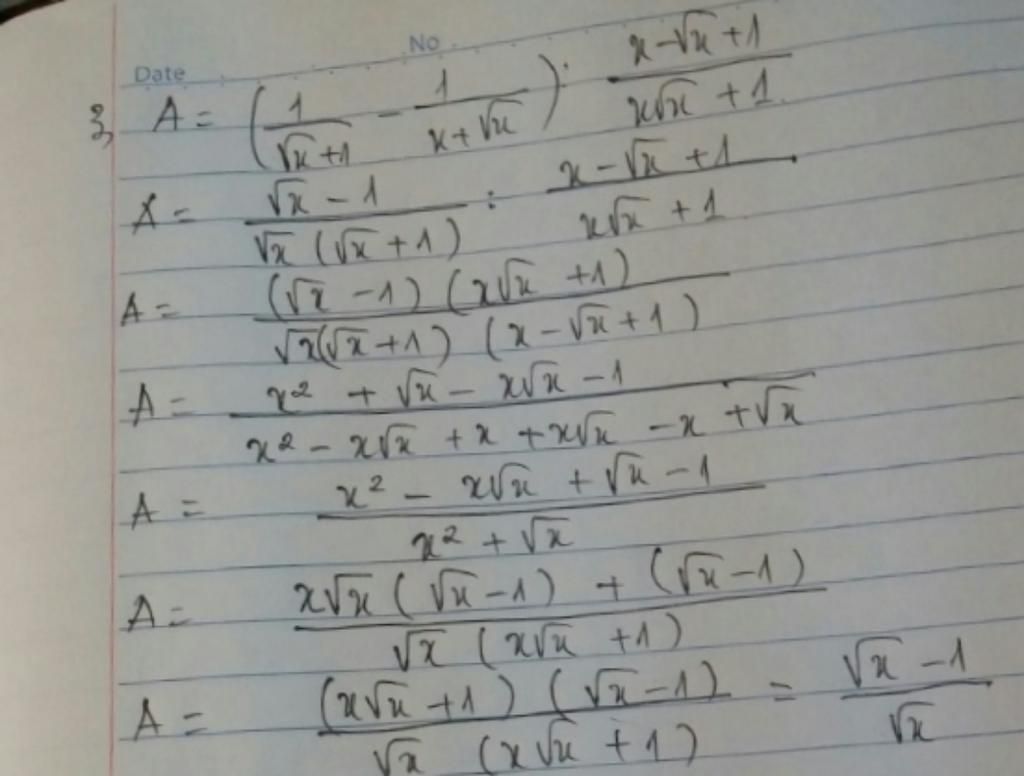 Date No
3, A = (1/(√x+1) - 1/(x+√x)) : (x-√x+1)/(x√x+1)
A = (√x-1)/(√x(√x+1)) : (x-√x+1)/(x√x+1)
A = ((√x-1)(x√x+1))/(√x(√x+1)(x-√x+1))
A = (x²+√x-x√x-1)/(x²-x√x+x+x√x-x+√x)
A = (x²-x√x+√x-1)/(x²+√x)
A = (x√x(√x-1)+(√x-1))/(√x(x√x+1))
A = ((x√x+1)(√x-1))/(√x(x√x+1)) = (√x-1)/√x